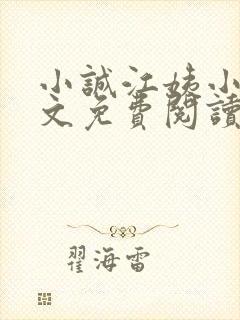 小誠江姨小
文免費閱讀
翟海雷